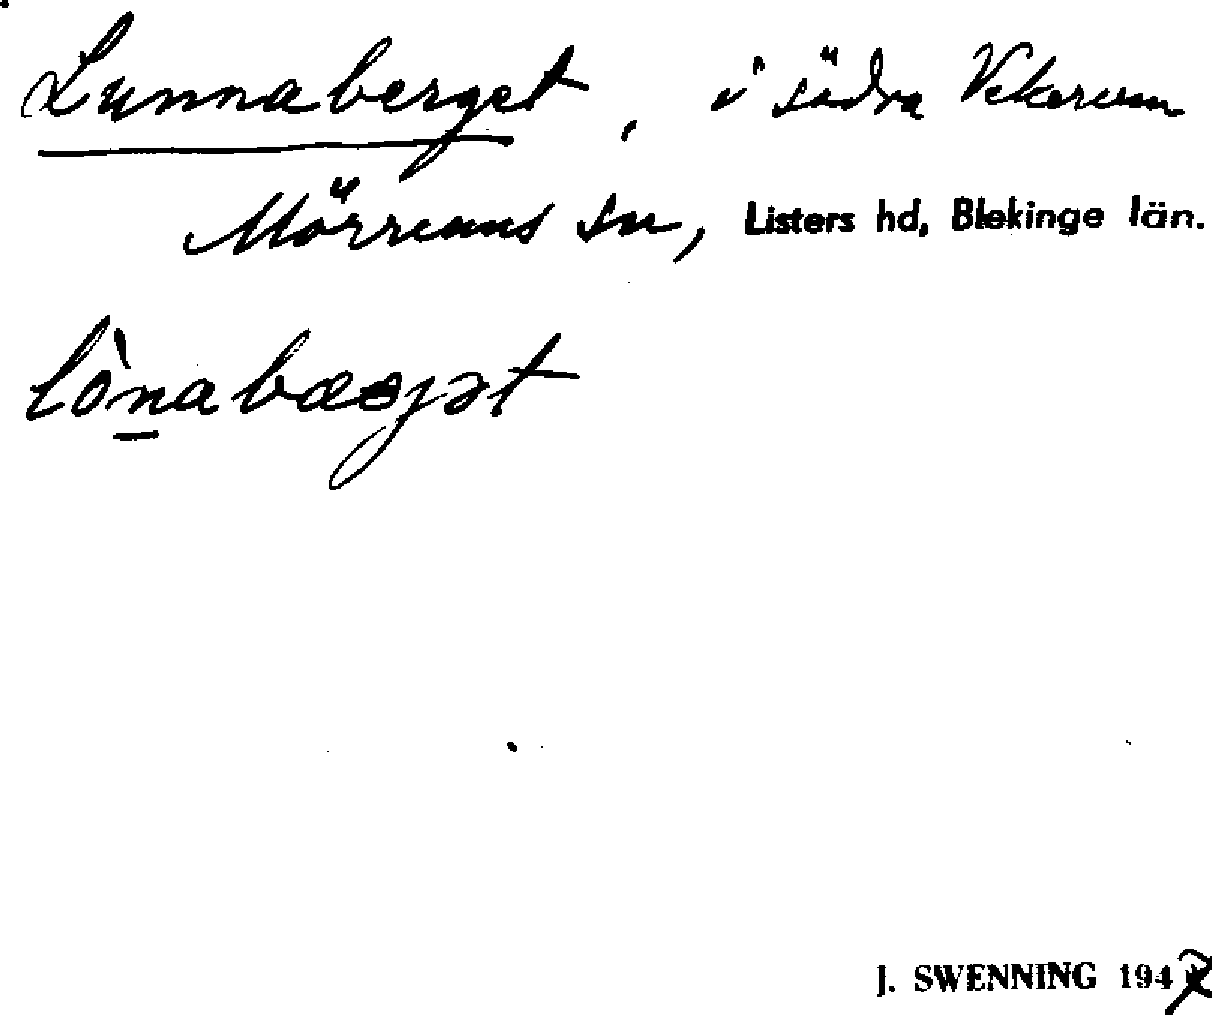 Lunnaberget, i södra Vekerum
Mörrums sn, Listers hd, Blekinge län.
lònabæRjət
J. SWENNING 1947